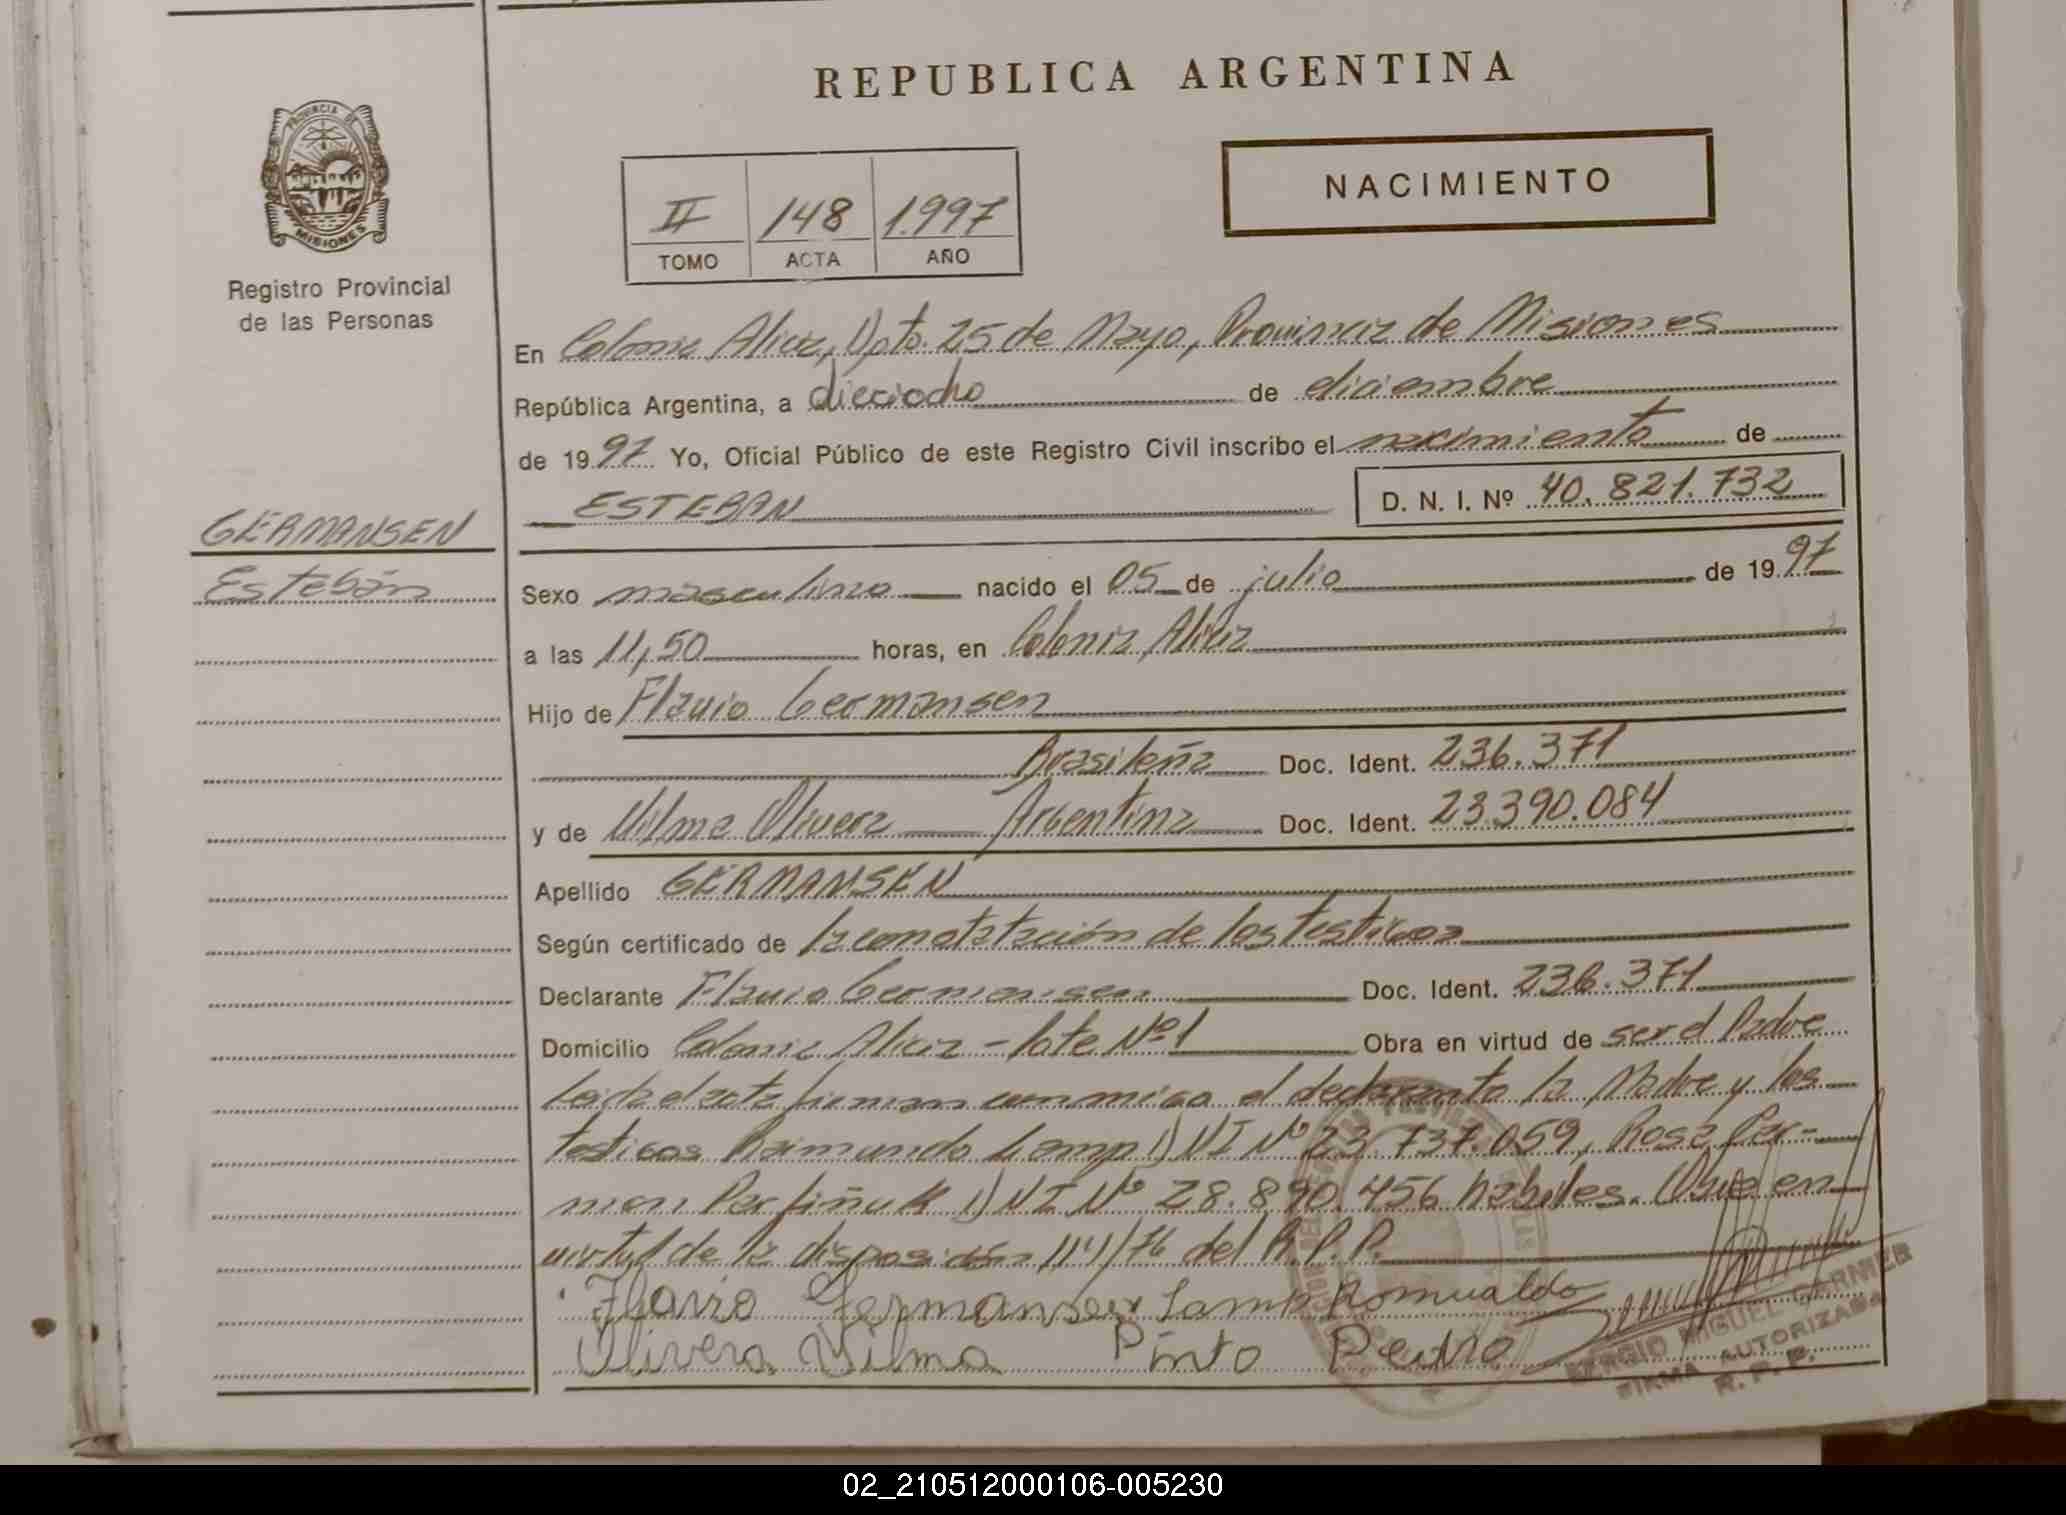 REPUBLICA ARGENTINA
PROVINCIA DE
MISIONES
Registro Provincial
de las Personas
NACIMIENTO
II 148 1.997
TOMO ACTA AÑO
En Colonia Alicia, Dpto. 25 de Mayo, Provincia de Misiones
República Argentina, a dieciocho de diciembre
de 1997 Yo, Oficial Público de este Registro Civil inscribo el nacimiento de
ESTEBAN D. N. I. Nº 40.821.732
GERMANSEN
Estebán
Sexo masculino nacido el 05 de julio de 1997
a las 11,50 horas, en Colonia Alicia
Hijo de Flavio Germansen
Brasileña Doc. Ident. 236.371
y de Vilma Olivera Argentina Doc. Ident. 23.390.084
Apellido GERMANSEN
Según certificado de la constatación de los testigos
Declarante Flavio Germansen Doc. Ident. 236.371
Domicilio Colonia Alicia - lote Nº 1 Obra en virtud de ser el Padre
Leida el acta firman conmigo el declarante la Madre y los
testigos Raimundo Lamp DNI Nº 23.737.059, Rosa Car-
men DNI Nº 28.890.456 habiles. en
virtud de la disposición /76 del R.P.P.
Flavio Germansen Lamp Romualdo
Olivera Vilma Pinto Pedro
SERGIO MIGUEL
FIRMA AUTORIZADA
R. P. P.
02_210512000106-005230